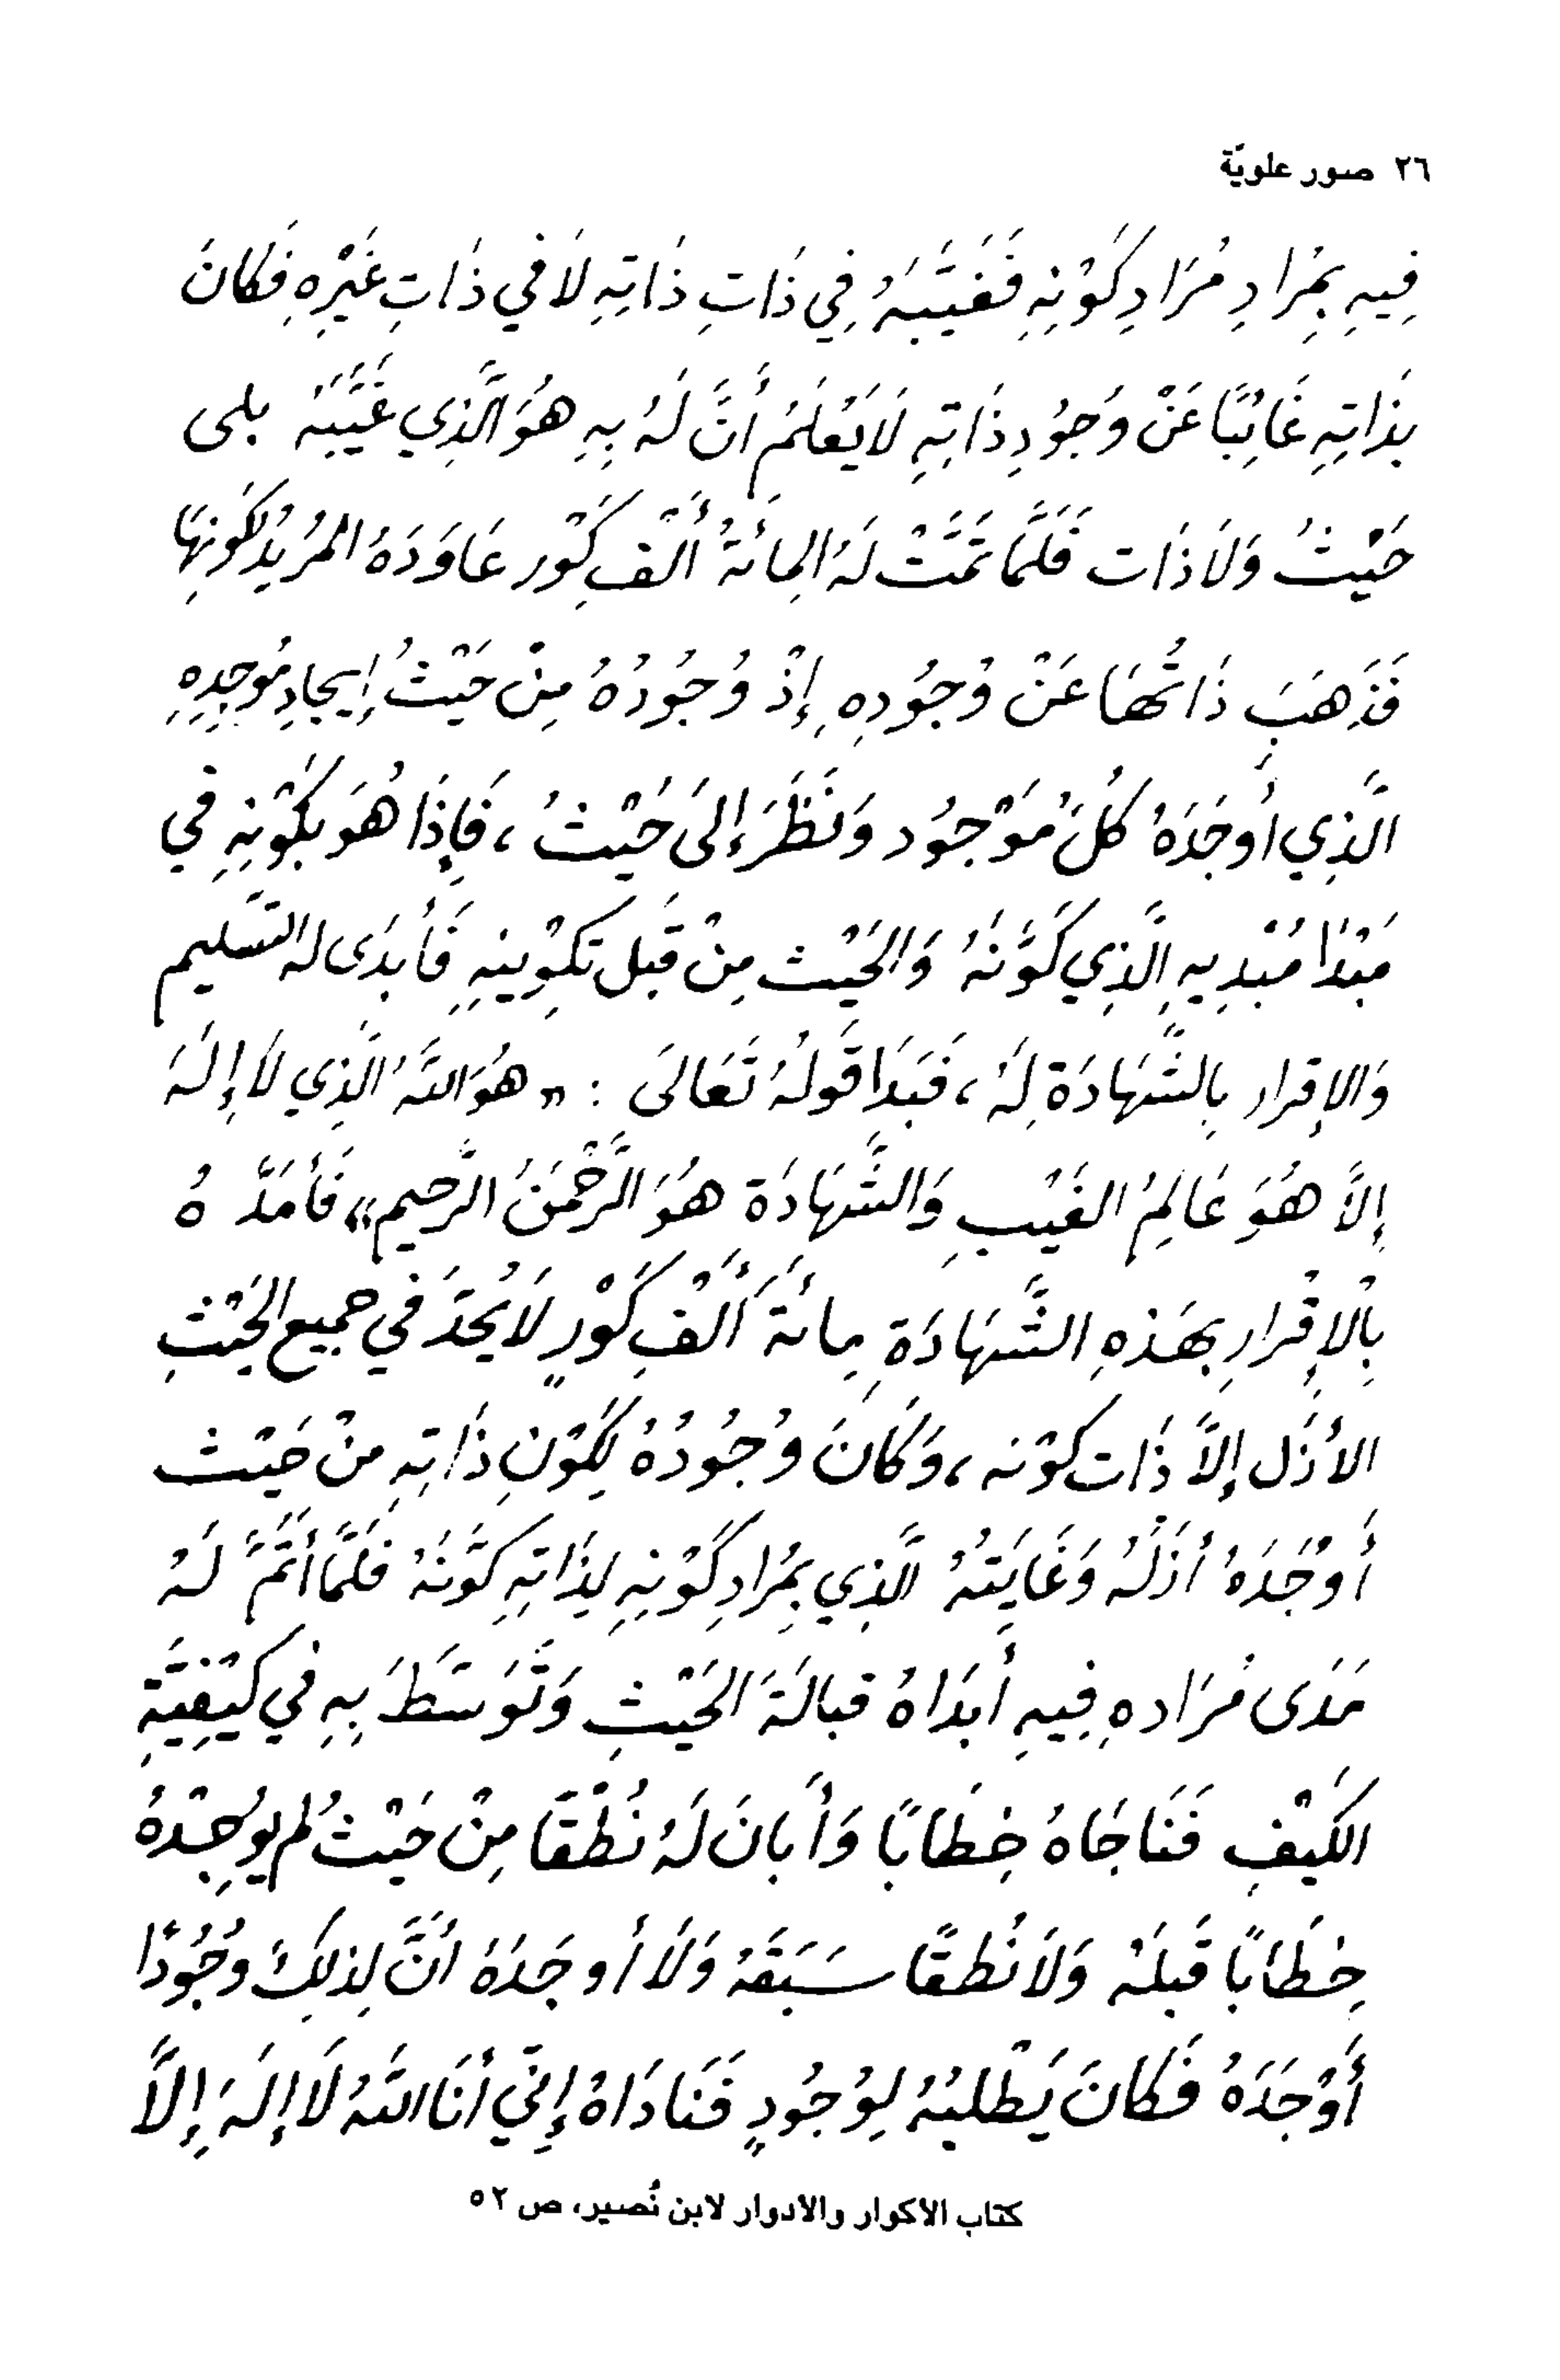 ٢٦ صور علويّة
فِيهِ بِمُرَادِ مُرَادِ كَوْنِهِ فَغَيَّبَهُ فِي ذَاتِ ذَاتِهِ لَا في ذَاتِ غَيْرِهِ فَكانَ
بذَاتِهِ غَائِبًا عَنْ وُجُودِ ذَاتِهِ لَا يَعْلَمُ أَنَّ لَهُ بِهِ هُوَ الَّذِي غَيَّبَهُ بلى
حَيْثُ وَلَا ذَات فَلَمَّا تَمَّتْ لَهُ المِائَةُ أَلْف كَوْر عَاوَدَهُ المُرِيدُ لكَونِهَا
فَذَهَبَ ذَاتُهَا عَنْ وُجُودِهِ إِذْ وُجُودُهُ مِنْ حَيْثُ إِيجادِ مُوجِدِهِ
الَّذِي أَوجَدَهُ كُلَّ مَوْجُود وَنَظَرَ إِلىَ حَيْثُ ، فَإِذَا هُوَ بكَوْنِهِ في
مَبْدَأ مُبْدِيهِ الَّذِي كَوَّنَهُ وَالحَيْث مِنْ قَبل تَكوِينِهِ فَأَبدَى له التسَليم
وَالإقرار بِالشَّهَادَة لَهُ ، فَبَدَا قَولُهُ تَعَالىَ : « هُوَ اللَّهُ الَّذِي لاَ إِلَهَ
إِلاَّ هُوَ عَالِمُ الغَيْبِ وَالشَّهَادَة هُوَ الرَّحْمَنُ الرَّحيم » فَأَمَدَّهُ
بِالْإِقْرارِ بهَذِهِ الشَّهَادَةِ مِائَةَ أَلْفِ كَوْرٍ لَا يُحَدَّ في جميع الحَيْثِ
الأزَل إِلاَّ ذَات كوْنه ، وَكَانَ وُجُودُهُ لِكَوْنِ ذَاتِهِ منْ حَيْث
أَوْجَدَهُ أزَلُهُ وَغَايَتُهُ الَّذِي بِمُرَادِ كَوْنِهِ لِذَاتِهِ كَوَّنَهُ فَلَمَّا أَتَمَّ لَهُ
مَدَى مُرَاده فِيهِ أبدَاهُ قبالَةَ الحَيْثِ وَتَوَسَّطَ بِهِ في كَيْفِيَّةِ
الكَيْفِ فَنَاجَاهُ خِطَابًا وَأَبانَ لَهُ نُطْقًا مِنْ حَيْثُ لم يُوجِدْهُ
خِطَابًا قَبلَهُ وَلاَ نُطقًا سَبَقَهُ وَلَا أوجَدَهُ أَنَّ لِذلِكَ وُجُودًا
أَوْجَدَهُ فَكانَ يَطْلبُهُ لِوُجُودٍ فَنَادَاهُ إِنّي أَنَا اللَّهُ لَا إِلَهَ إِلاَّ
كتاب الاكوار والادوار لابن نُصير، ص ٥٢